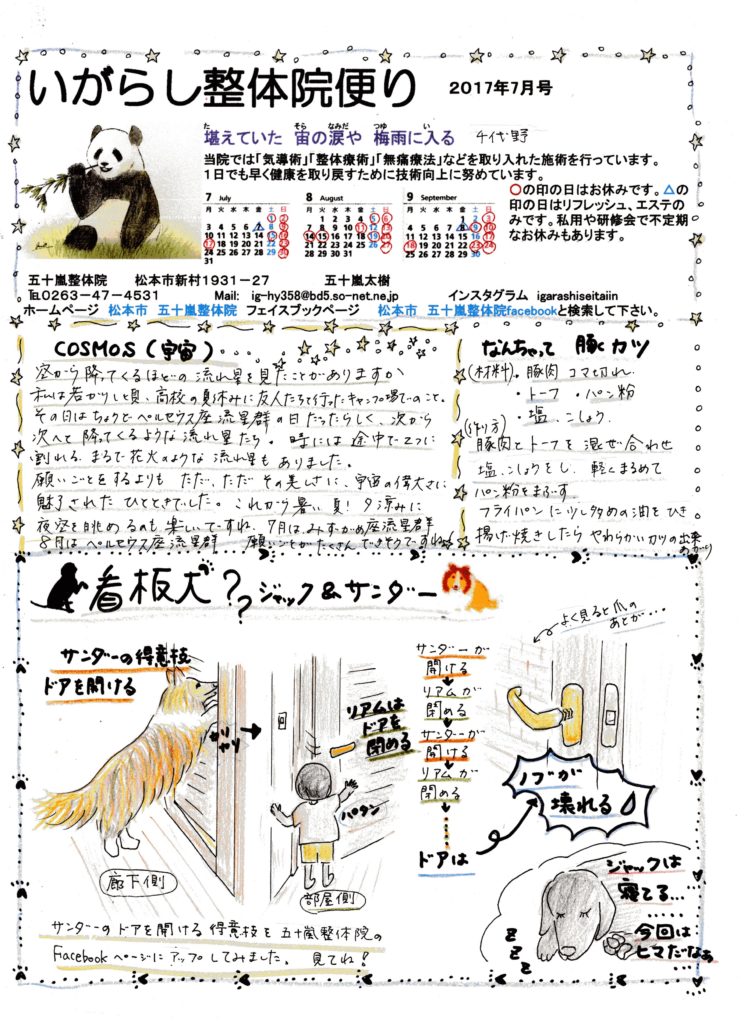 いがらし整体院便り 2017年7月号
堪えていた 宙の涙や 梅雨に入る 千代野
当院では「気導術」「整体療術」「無痛療法」などを取り入れた施術を行っています。
1日でも早く健康を取り戻すために技術向上に努めています。
7 July
月 火 水 木 金 土 日
1 2
3 4 5 6 7 8 9
10 11 12 13 14 15 16
17 18 19 20 21 22 23
24 25 26 27 28 29 30
31
8 August
月 火 水 木 金 土 日
1 2 3 4 5 6
7 8 9 10 11 12 13
14 15 16 17 18 19 20
21 22 23 24 25 26 27
28 29 30 31
9 September
月 火 水 木 金 土 日
1 2 3
4 5 6 7 8 9 10
11 12 13 14 15 16 17
18 19 20 21 22 23 24
25 26 27 28 29 30
○の印の日はお休みです。△の
印の日はリフレッシュ、エステの
みです。私用や研修会で不定期
なお休みもあります。
五十嵐整体院 松本市新村1931-27 五十嵐太樹
℡0263-47-4531 Mail: ig-hy358@bd5.so-net.ne.jp インスタグラム igarashiseitaiin
ホームページ 松本市 五十嵐整体院 フェイスブックページ 松本市 五十嵐整体院facebookと検索して下さい。
COSMOS (宇宙)
空から降ってくるほどの流れ星を見たことがありますか
私は若かりし頃、高校の夏休みに友人たちと行ったキャンプ場でのこと。
その日はちょうどペルセウス座流星群の日だったらしく、次から
次へと降ってくるような流れ星たち。時には途中で2つに
割れる、まるで花火のような流れ星もありました。
願いごとをするよりも ただ、ただ その美しさに、宇宙の偉大さに
魅了されたひとときでした。これから暑い夏! 夕涼みに
夜空を眺めるのも楽しいですね、7月はみずがめ座流星群
8月はペルセウス座流星群 願いごとがたくさんできそうですね
なんちゃって 豚カツ
(材料)・豚肉 コマ切れ
・トーフ ・パン粉
・塩、こしょう
(作り方)
豚肉とトーフを混ぜ合わせ
塩、こしょうをし、軽くまるめて
パン粉をまぶす
フライパンに少し多めの油をひき
揚げ焼きしたら やわらかいカツの出来
あがり
看板犬?? ジャック&サンダー
サンダーの得意技
ドアを開ける
カリ
カリ
廊下側
リアムは
ドアを
閉める
パタン
部屋側
サンダーが
開ける
リアムが
閉める
サンダーが
開ける
リアムが
閉める
ドアは
よく見ると爪の
あとが…
ノブが
壊れる
ジャックは
寝てる…
今回は
ヒマだなぁ
z z z
サンダーのドアを開ける得意技を五十嵐整体院の
Facebookページにアップしてみました。見てね!